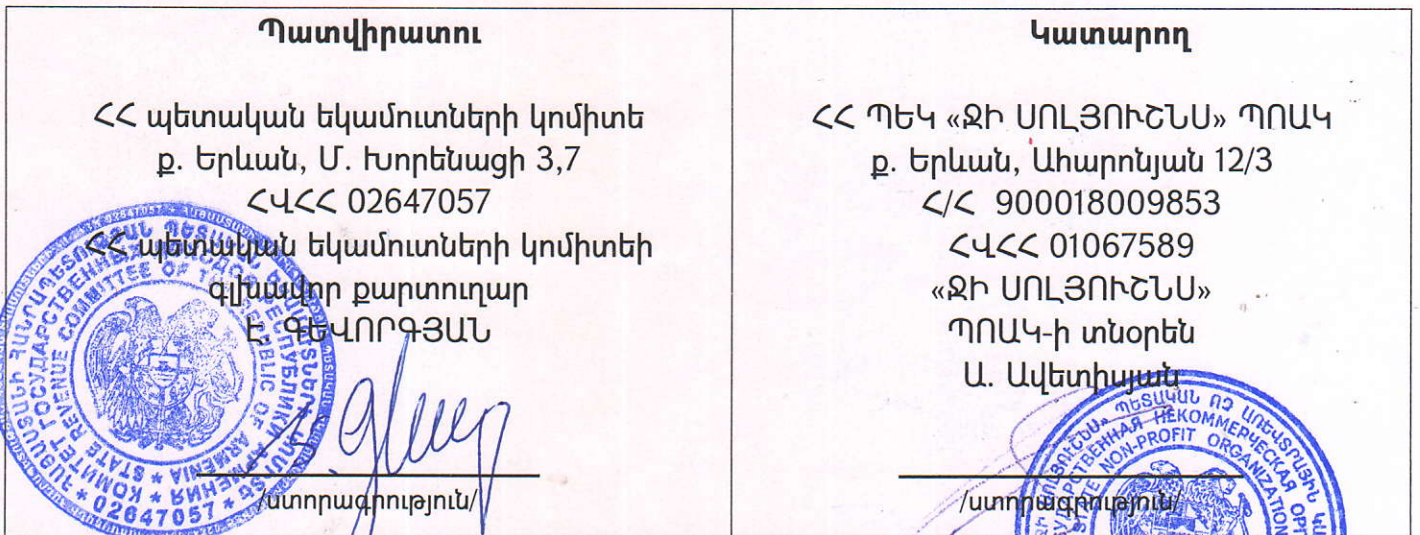 Պատվիրատու
ՀՀ պետական եկամուտների կոմիտե
ք. Երևան, Մ. Խորենացի 3,7
ՀՎՀՀ 02647057
ՀՀ պետական եկամուտների կոմիտեի
գլխավոր քարտուղար
Է. ԳԵՎՈՐԳՅԱՆ
/ստորագրություն/
STATE REVENUE COMMITTEE OF THE REPUBLIC OF ARMENIA
02647057
Կատարող
ՀՀ ՊԵԿ «ՋԻ ՍՈԼՅՈՒՇՆՍ» ՊՈԱԿ
ք. Երևան, Ահարոնյան 12/3
Հ/Հ 900018009853
ՀՎՀՀ 01067589
«ՋԻ ՍՈԼՅՈՒՇՆՍ»
ՊՈԱԿ-ի տնօրեն
Ա. Ավետիսյան
/ստորագրություն/
ՊԵՏԱԿԱՆ ՈՉ ԱՌԵՎՏՐԱՅԻՆ
НЕКОММЕРЧЕСКАЯ
NON-PROFIT ORGANIZATION